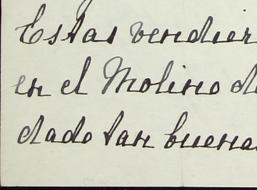 Estas vendier
en el Molino de
dado tan buena